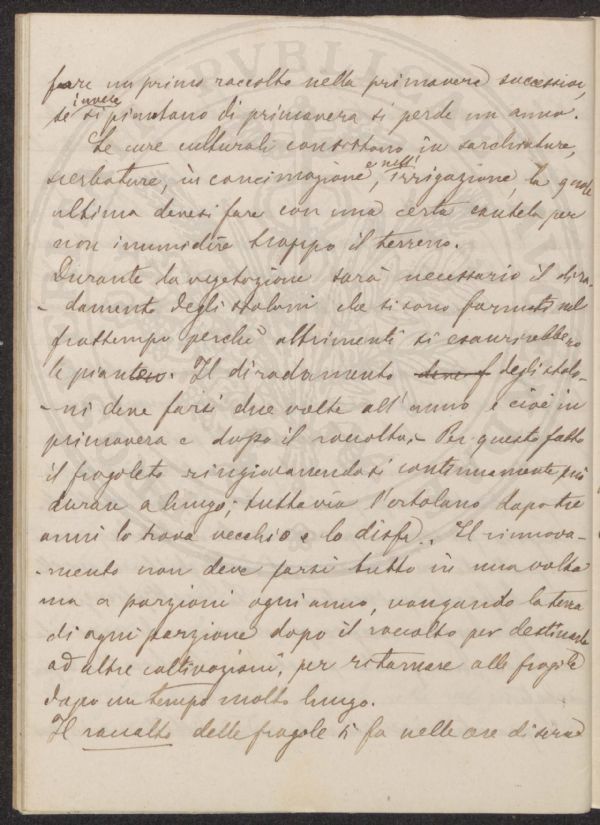 fare un primo raccolto nella primavera successiva,
se invece si piantano di primavera si perde un anno.
Le cure culturali consistono in sarchiature,
scerbature, in concimazione, e nell'irrigazione, la quale
ultima devesi fare con una certa cautela per
non inumidire troppo il terreno.
Durante la vegetazione sarà necessario il dira-
-damento degli stoloni che si sono formati nel
frattempo perchè altrimenti si esaurirebbero
le piante. Il diradamento degli stolo-
-ni deve farsi due volte all'anno e cioè in
primavera e dopo il raccolto. Per questo fatto
il fragoleto ringiovanendosi continuamente può
durare a lungo; tuttavia l'ortolano dopo tre
anni lo trova vecchio e lo disfa. Il rinnova-
-mento non deve farsi tutto in una volta
ma a porzioni ogni anno, vangando la terra
di ogni porzione dopo il raccolto per destinarla
ad altre coltivazioni, per ritornare alle fragole
dopo un tempo molto lungo.
Il raccolto delle fragole si fa nelle ore di sera